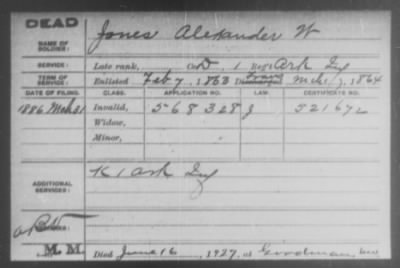 DEAD
NAME OF SOLDIER: Jones Alexander W
SERVICE: Late rank, Co. D 1 Reg't Ark Inf
TERM OF SERVICE: Enlisted Feb 7, 1863 Discharged Mch 1864
DATE OF FILING. CLASS. APPLICATION NO. LAW. CERTIFICATE NO.
1886 Mch 31 Invalid, 568328 J 521672
Widow,
Minor,
ADDITIONAL SERVICES: K 1 Ark Inf
M. M. Died June 16, 1927, at Goodman,